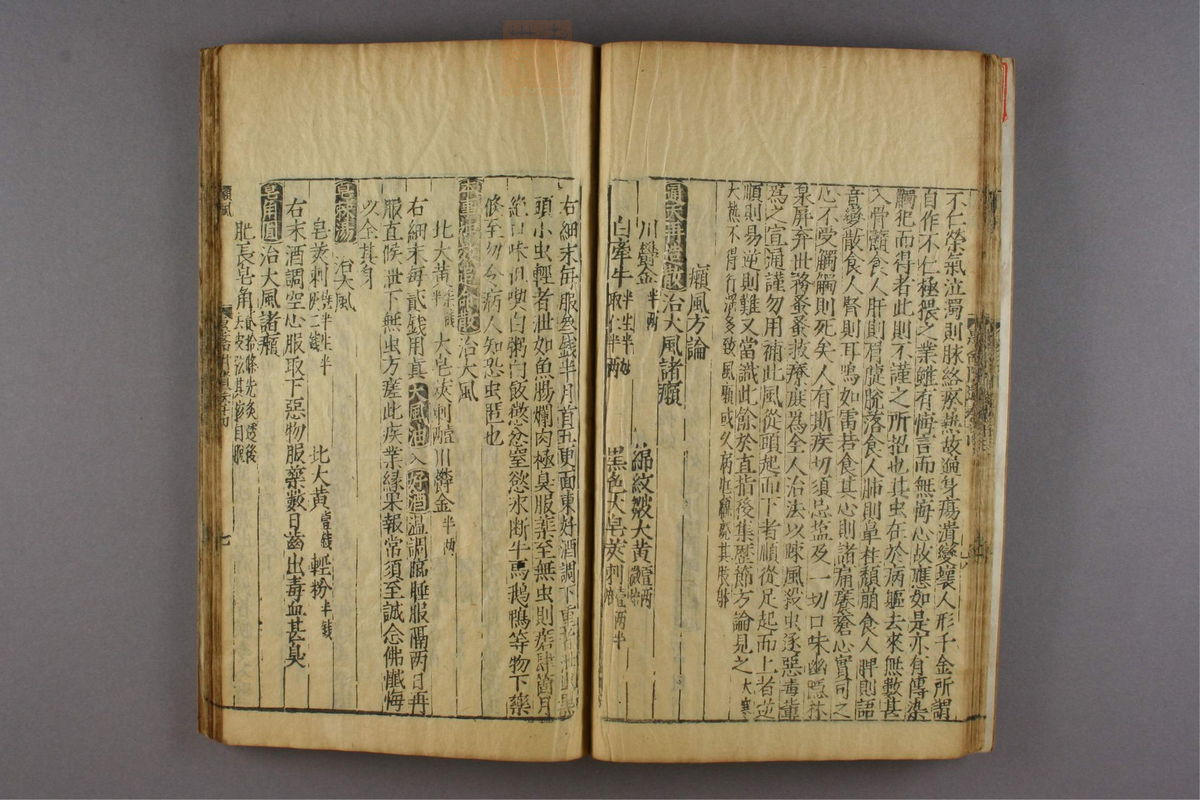 不仁榮氣泣濁則脉絡瘀熱故遍身瘍潰變壞人形千金所謂
自作不仁極猥之業雖有悔言而無悔心故應如是亦有傳染
觸犯而得者此則不謹之所招也其虫在於病軀去來無數甚
入骨髓食人肝則眉睫墮落食人肺則鼻柱頹崩食人脾則語
音變散食人腎則耳鳴如雷若食其心則諸痛痒瘡心實司之
心不受觸觸則死矣人有斯疾切須忌盐及一切口味幽隱林
泉屏弃世務蚤蚤救療庶為全人治法以疎風殺虫逐惡毒
為之宣通謹勿用補此風從頭起而下者順從足起而上者逆
順則易逆則難又當識此餘於直指後集歷節方論見之 大寒
大熱不得行瀉多致風
癩風方論
治大風諸癩
川鬱金半兩
綿紋皺大黃
白牽牛半生半炒取仁半兩
黑色大皂莢刺
右細末每服叁錢半月首五更面東好酒調下
頭小虫輕者泄如魚腸爛肉極臭服藥至無虫則瘥肆箇月
絕口味但喫白粥白飯懲忿窒慾永斷牛馬鵝鴨等物下藥
修至勿令病人知恐虫匿也
治大風
北大黃
大皂莢刺
川鬱金半兩
右細末每貳錢用真大風油入好酒溫調臨睡服隔两日再
服直候泄下無虫方瘥此疾業緣果報常須至誠念佛懺悔
以全其身
皂棘湯 治大風
皂莢刺燒半生半
北大黃
輕粉半錢
右末酒調空心服取下惡物服藥數日齒出毒血甚臭
皂角圓治大風諸癩
肥長皂角
七